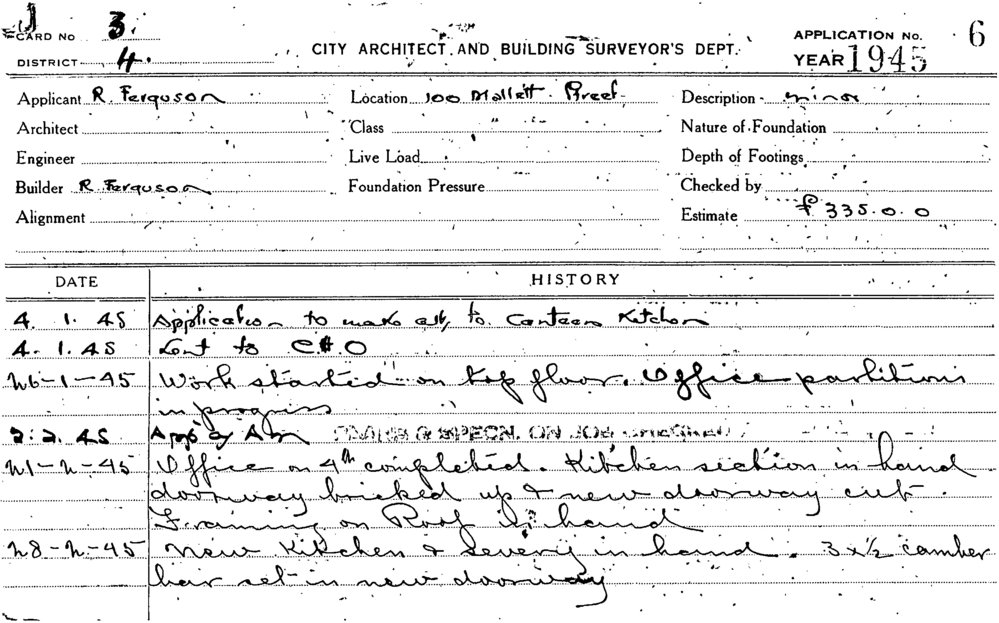 CARD No 3.
DISTRICT 4.
CITY ARCHITECT AND BUILDING SURVEYOR'S DEPT.
APPLICATION No. 6
YEAR 1945
Applicant R. Ferguson Location 100 Mallett Street. Description minor
Architect Class Nature of Foundation
Engineer Live Load Depth of Footings
Builder R Ferguson Foundation Pressure Checked by
Alignment Estimate £335.0.0
DATE HISTORY
4. 1. 45 Application to make alts, to Canteen Kitchen
4. 1. 45 Sent to C.H.O
26-1-45 Work started on top floor. Office partitions
in progress
2. 2. 45 App'd PLANS & SPECN. ON JOB CHECKED
21-2-45 Office on 4th completed. Kitchen section in hand
doorway bricked up & new doorway cut.
Framing on Roof in hand
28-2-45 New Kitchen & Servery in hand. 3 x ½ camber
bar set in new doorway